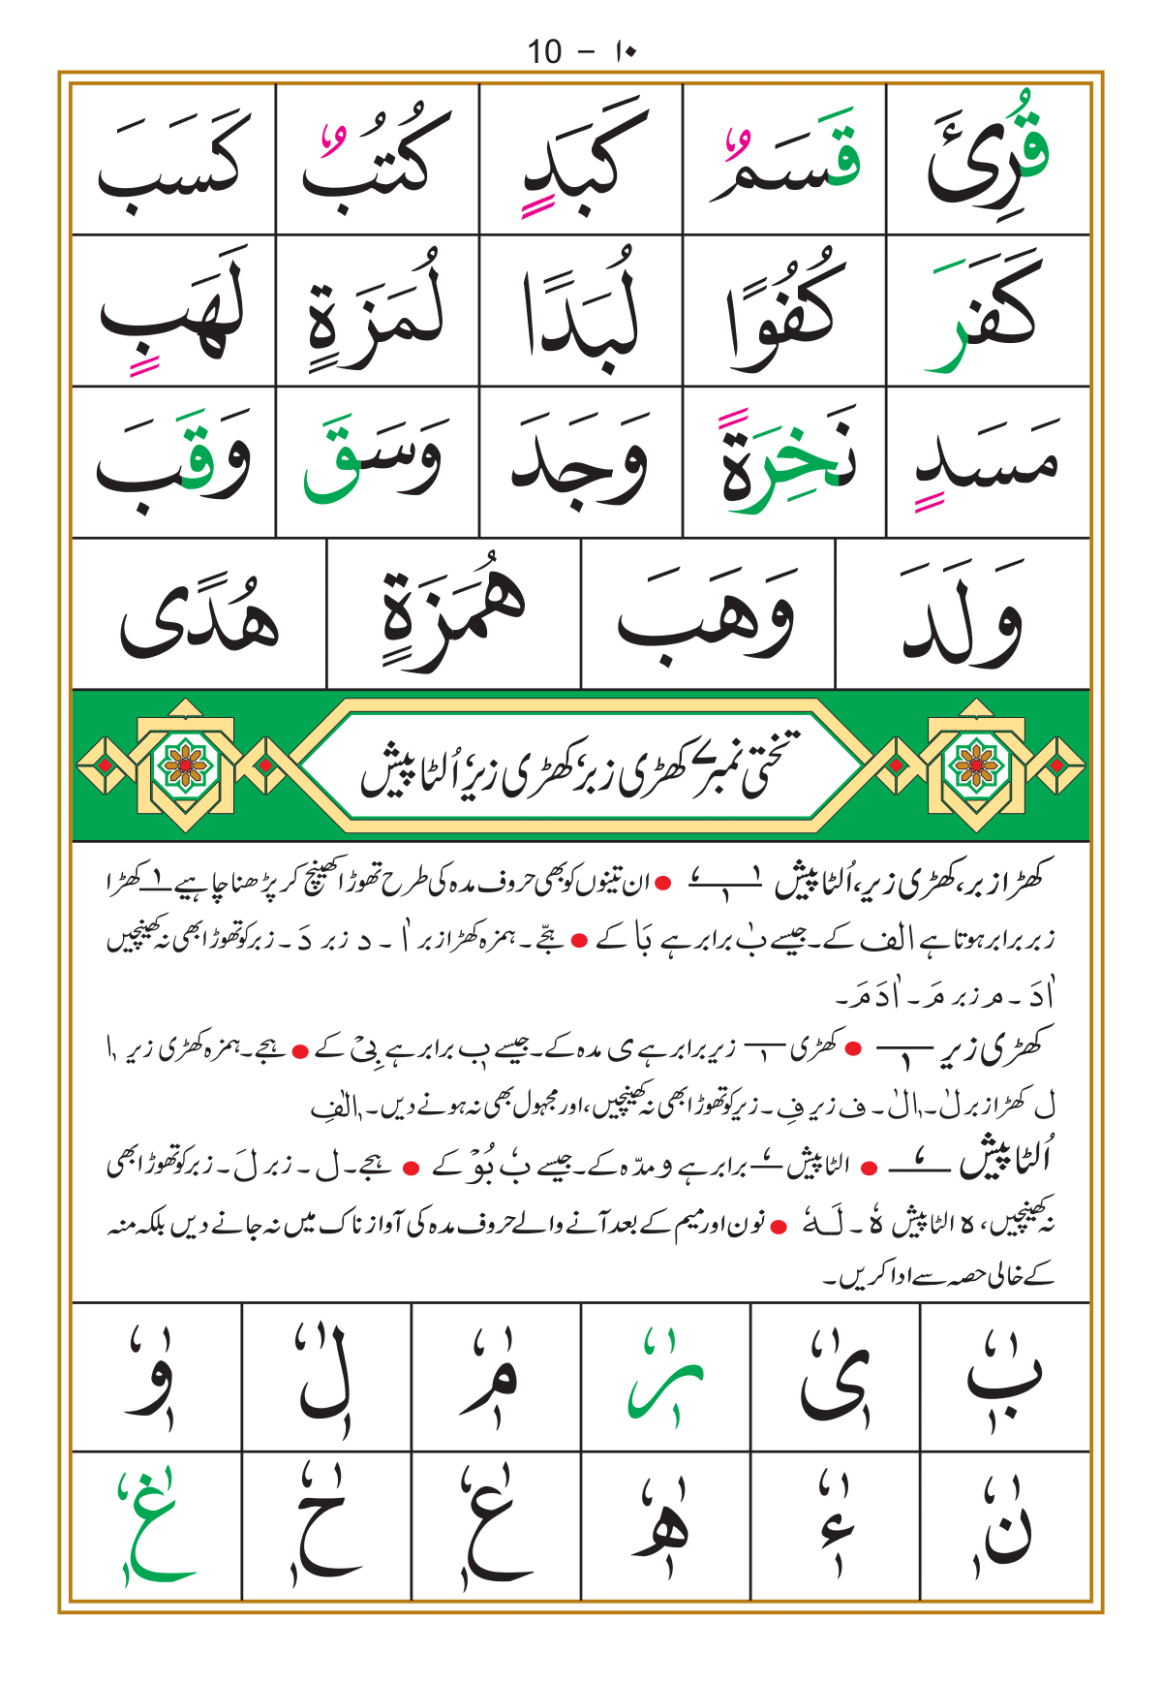 10 – ۱۰
قُرِئَ قَسَمٌ كَبَدٍ كُتُبٌ كَسَبَ
كَفَرَ كُفُوًا لُبَدًا لُمَزَةٍ لَهَبٍ
مَسَدٍ نَخِرَةً وَجَدَ وَسَقَ وَقَبَ
وَلَدَ وَهَبَ هُمَزَةٍ هُدًى
تختی نمبر ۷ کھڑی زبر، کھڑی زیر، اُلٹا پیش
کھڑا زبر، کھڑی زیر، اُلٹا پیش ـٰـ ـٖـ ـٗـ ● ان تینوں کو بھی حروف مدہ کی طرح تھوڑا کھینچ کر پڑھنا چاہیے ـٰـ کھڑا
زبر برابر ہوتا ہے الف کے۔ جیسے بٰ برابر ہے بَا کے ● ہجّے ۔ ہمزہ کھڑا زبر اٰ ۔ د زبر دَ ۔ زبر کو تھوڑا بھی نہ کھینچیں
اٰدَ ۔ م زبر مَ ۔ اٰدَمَ ۔
کھڑی زیر ـٖـ ● کھڑی ـٖـ زیر برابر ہے ی مدہ کے۔ جیسے بٖ برابر ہے بِیْ کے ● ہجے۔ ہمزہ کھڑی زیر اٖ
ل کھڑا زبر لٰ۔ اٖلٰ ۔ ف زیر فِ ۔ زیر کو تھوڑا بھی نہ کھینچیں، اور مجہول بھی نہ ہونے دیں ۔ اٖلٰفِ
اُلٹا پیش ـٗـ ● الٹا پیش ـٗـ برابر ہے و مدّہ کے۔ جیسے بٗ بُوْ کے ● ہجے۔ ل ۔ زبر لَ ۔ زبر کو تھوڑا بھی
نہ کھینچیں، ہ الٹا پیش هٗ ۔ لَهٗ ● نون اور میم کے بعد آنے والے حروف مدہ کی آواز ناک میں نہ جانے دیں بلکہ منہ
کے خالی حصہ سے ادا کریں ۔
بٰٖٗ یٰٖٗ رٰٖٗ مٰٖٗ لٰٖٗ وٰٖٗ
نٰٖٗ ءٰٖٗ هٰٖٗ عٰٖٗ حٰٖٗ غٰٖٗ